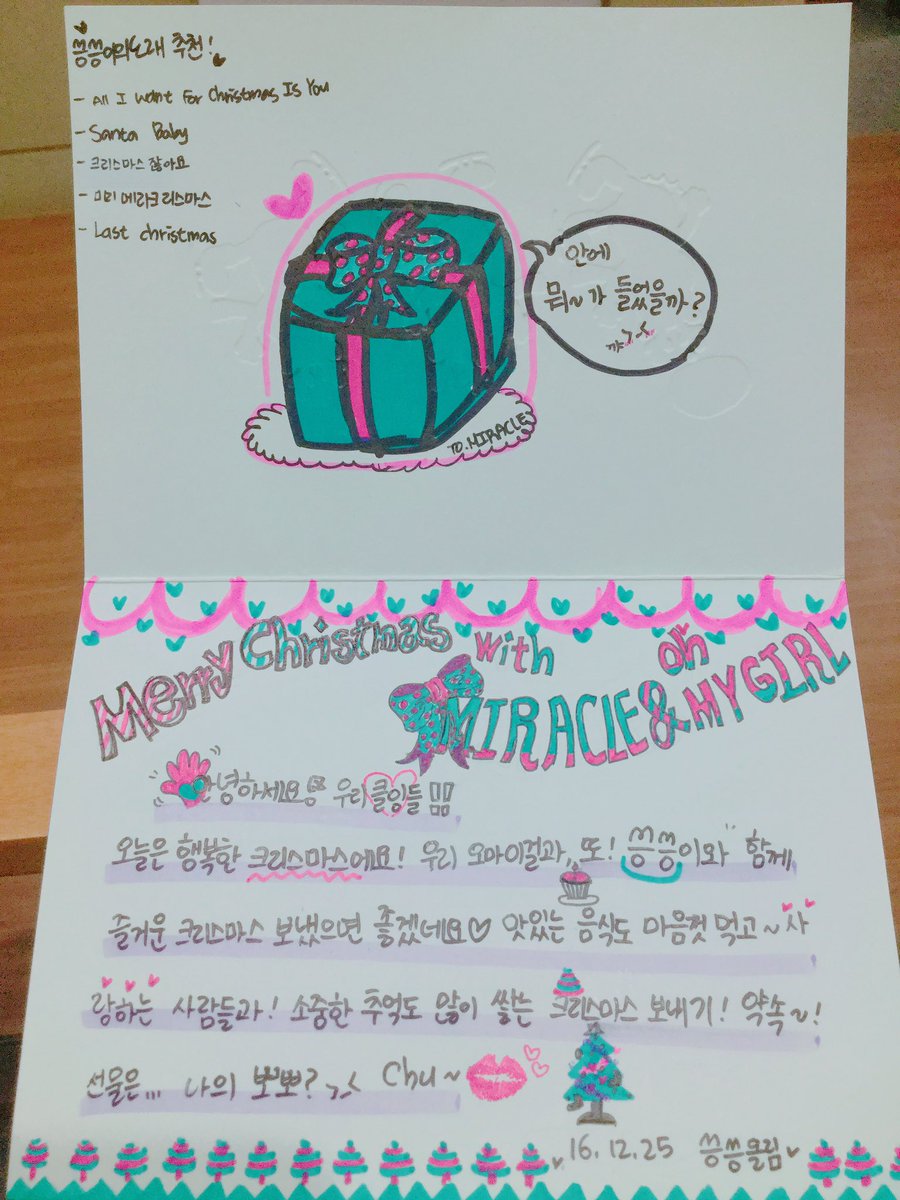 씅씅이의 노래 추천!
- All I Want For Christmas Is You
- Santa Baby
- 크리스마스 잖아요
- 미리 메리크리스마스
- Last christmas
안에
뭐~가 들었을까?
꺄
TO. MIRACLE
Merry Christmas with
MIRACLE & OH MY GIRL
안녕하세요 우리 클잉들
오늘은 행복한 크리스마스에요! 우리 오마이걸과,, 또! 씅씅이와 함께
즐거운 크리스마스 보냈으면 좋겠네요♡ 맛있는 음식도 마음껏 먹고~ 사
랑하는 사람들과! 소중한 추억도 많이 쌓는 크리스마스 보내기! 약속~!
선물은... 나의 뽀뽀? >,< Chu~
16.12.25 씅씅올림